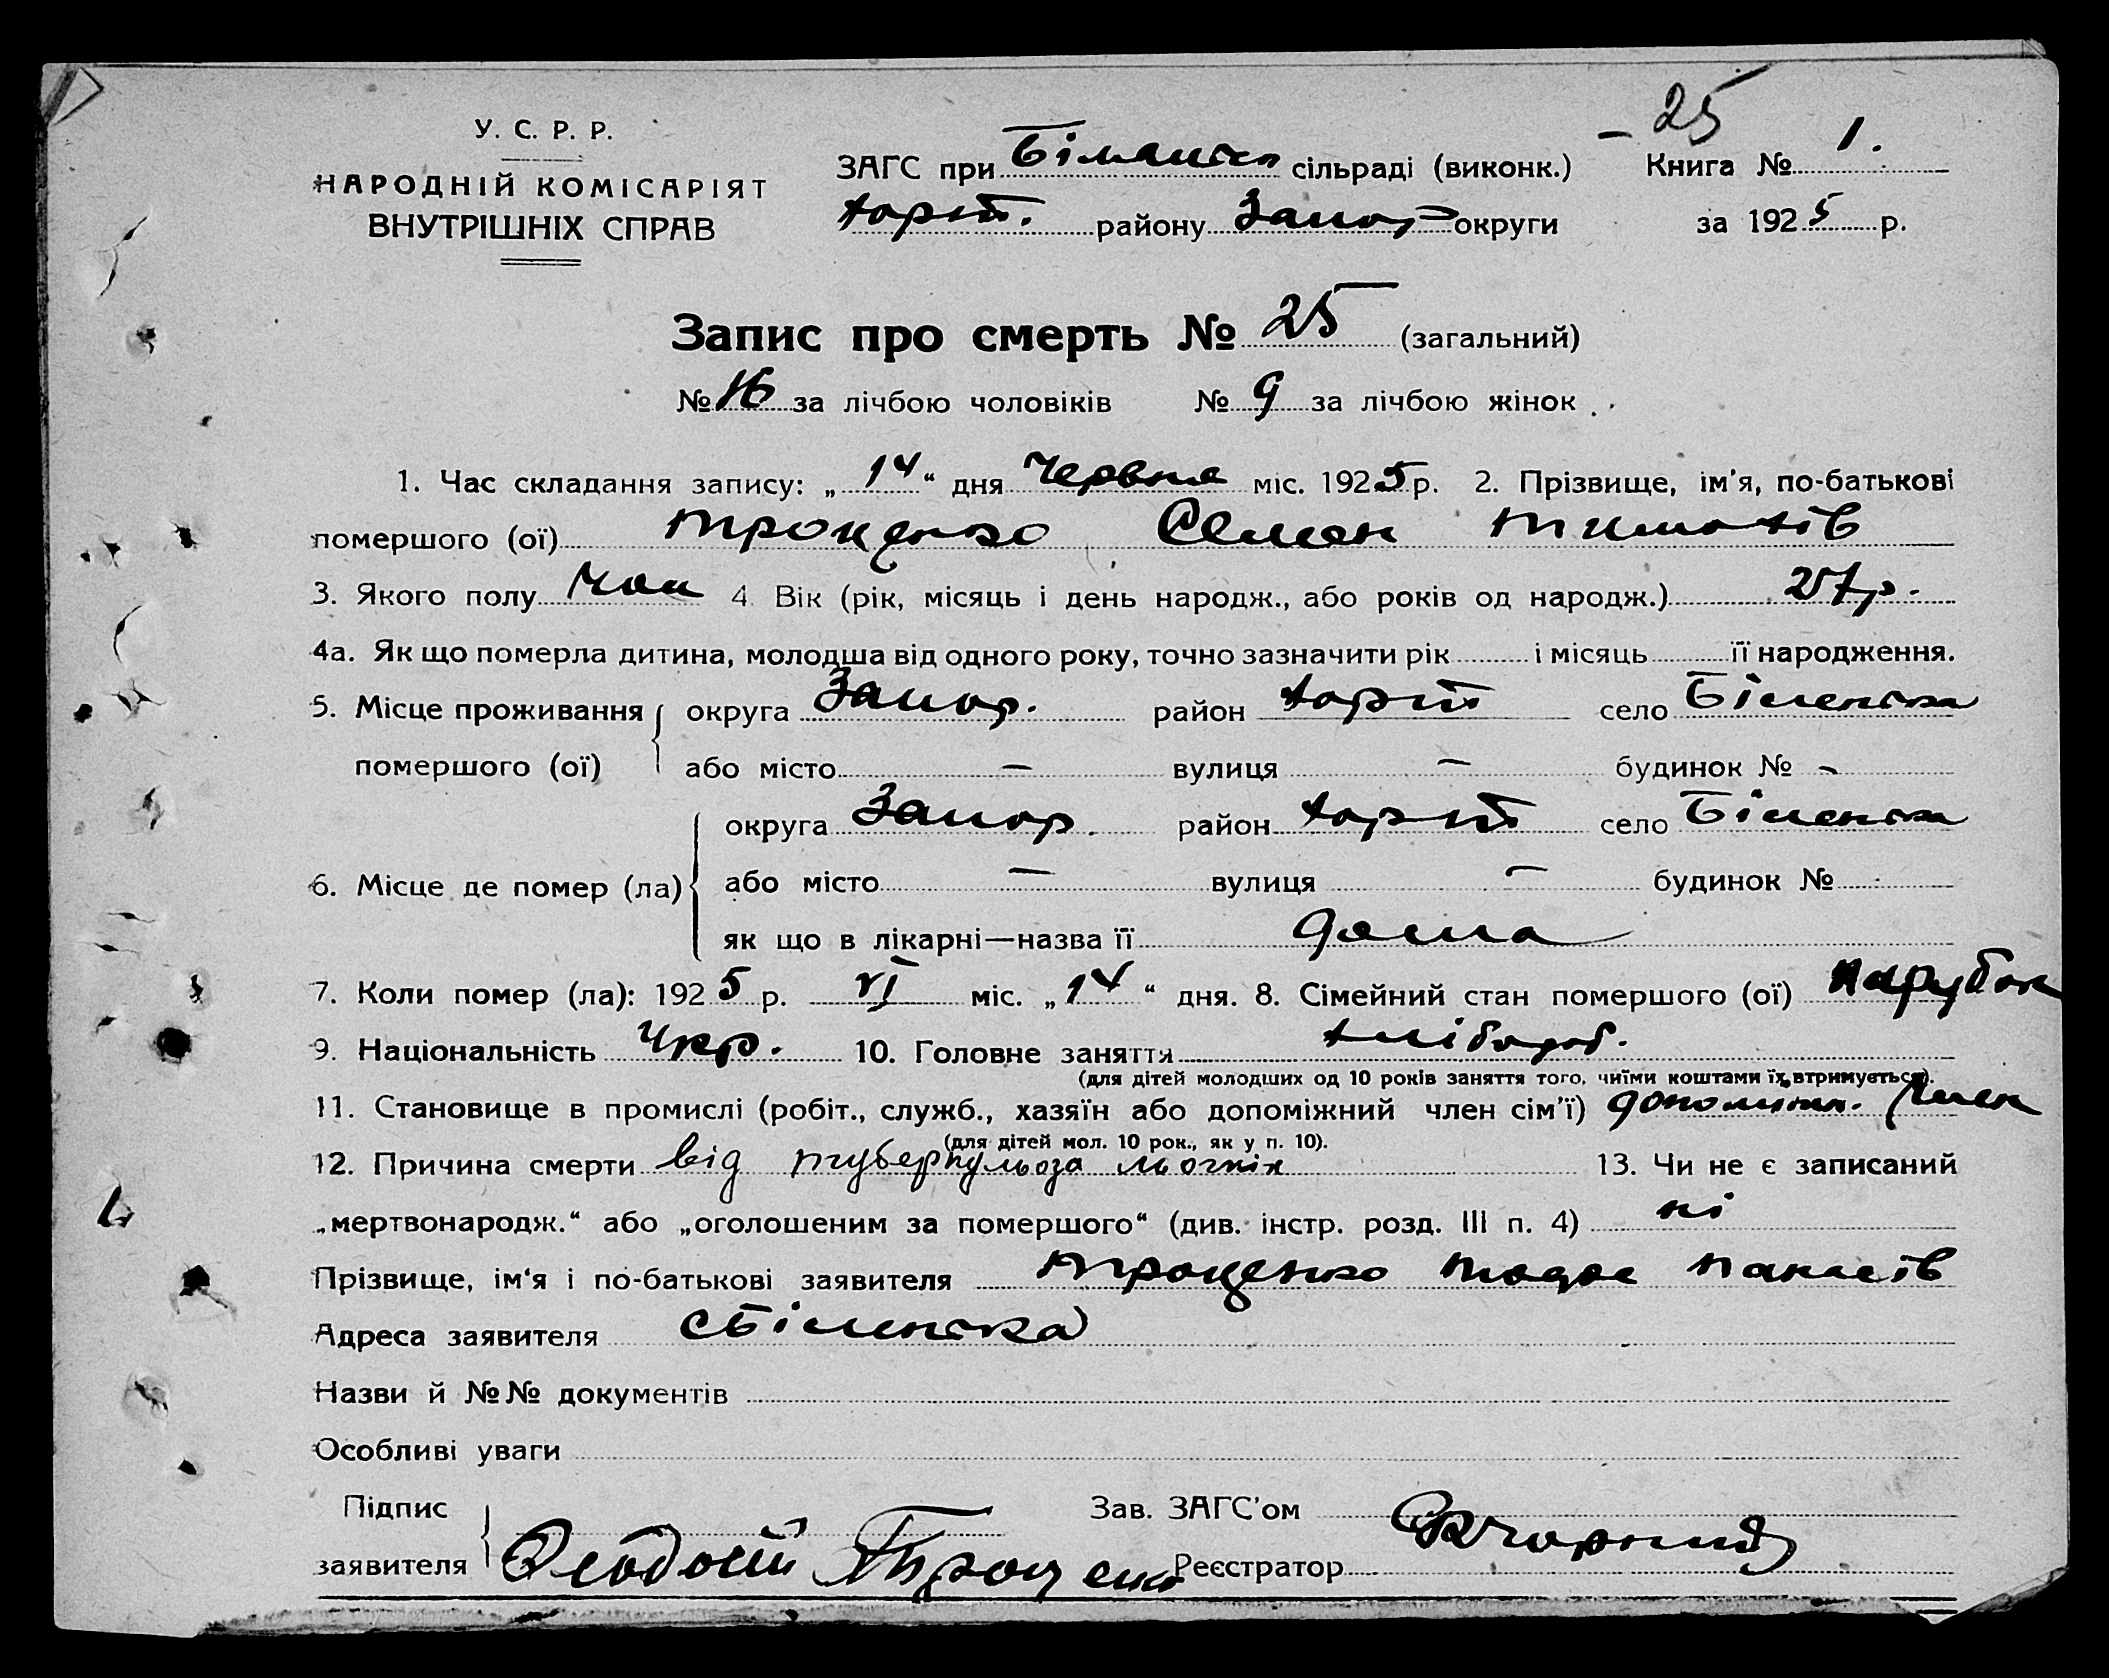 - 25
У. С. Р. Р.
НАРОДНІЙ КОМІСАРІЯТ
ВНУТРІШНІХ СПРАВ
ЗАГС при сільраді (виконк.) Книга № 1.
Хорт. району Запор округи за 1925 р.
Запис про смерть № 25 (загальний)
№ 16 за лічбою чоловіків № 9 за лічбою жінок
1. Час складання запису: „14“ дня Червня міс. 1925 р. 2. Прізвище, ім'я, по-батькові
помершого (ої) Троценко Семен Тимохів
3. Якого полу Чол 4. Вік (рік, місяць і день народж., або років од народж.) 27 р.
4а. Як що померла дитина, молодша від одного року, точно зазначити рік і місяць її народження.
5. Місце проживання округа Запор. район Хорт село Біленька
помершого (ої) або місто — вулиця — будинок № -
округа Запор. район Хорт село Біленька
6. Місце де помер (ла) або місто — вулиця — будинок №
як що в лікарні—назва її дома
7. Коли помер (ла): 1925 р. VI міс. „14“ дня. 8. Сімейний стан помершого (ої) парубок
9. Національність Укр. 10. Головне заняття хлібороб.
(для дітей молодших од 10 років заняття того, чиїми коштами їх втримується).
11. Становище в промислі (робіт., служб., хазяїн або допоміжний член сім'ї) член
(для дітей мол. 10 рок., як у п. 10).
12. Причина смерти від туберкульоза льогких 13. Чи не є записаний
„мертвонародж.“ або „оголошеним за помершого“ (див. інстр. розд. III п. 4) ні
Прізвище, ім'я і по-батькові заявителя Троценко Тодос Панасів
Адреса заявителя с Біленька
Назви й №№ документів
Особливі уваги
Підпис Зав. ЗАГС'ом
заявителя Феодосій Троценко Реєстратор